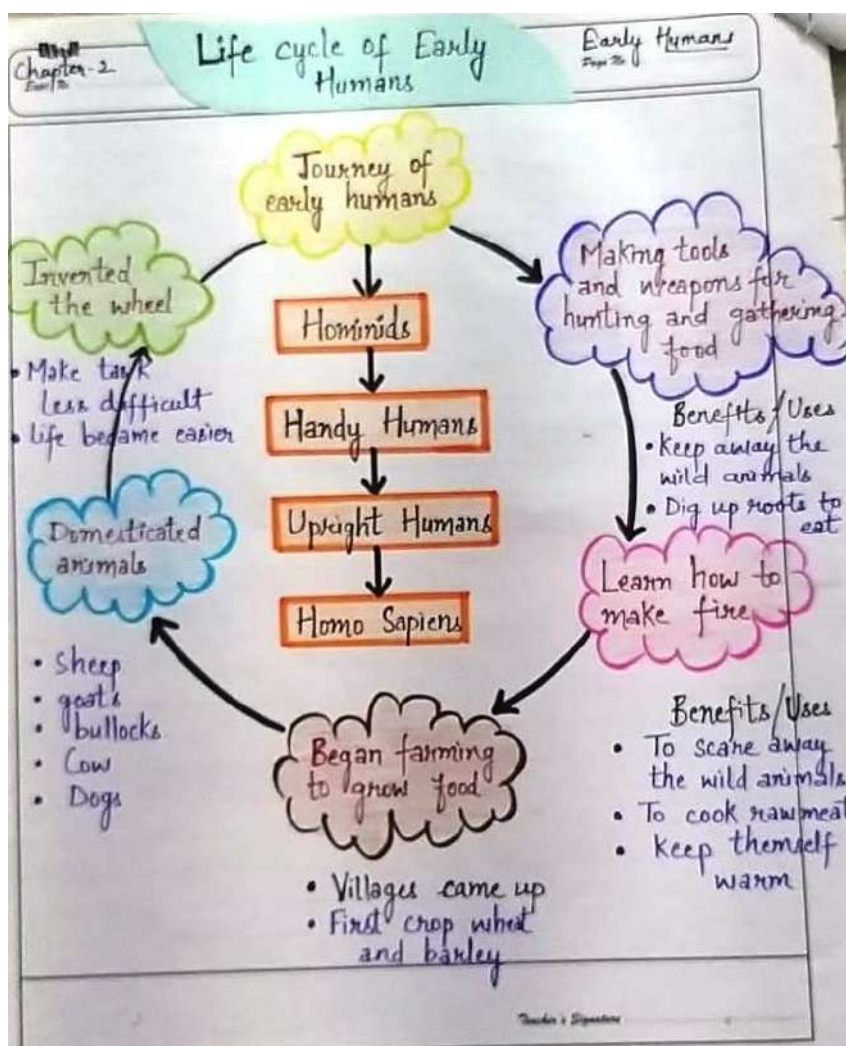 Chapter-2
Life cycle of Early
Humans
Early Humans
Page No.
Journey of
early humans
Making tools
and weapons for
hunting and gathering
food
Benefits/Uses
• Keep away the
wild animals
• Dig up roots to
eat
Learn how to
make fire
Benefits/Uses
• To scare away
the wild animals
• To cook raw meat
• Keep themself
warm
Began farming
to grow food
• Villages came up
• First crop wheat
and barley
Domesticated
animals
• Sheep
• goats
• bullocks
• Cow
• Dogs
Invented
the wheel
• Make task
less difficult
• Life became easier
Hominids
Handy Humans
Upright Humans
Homo Sapiens
Teacher's Signature